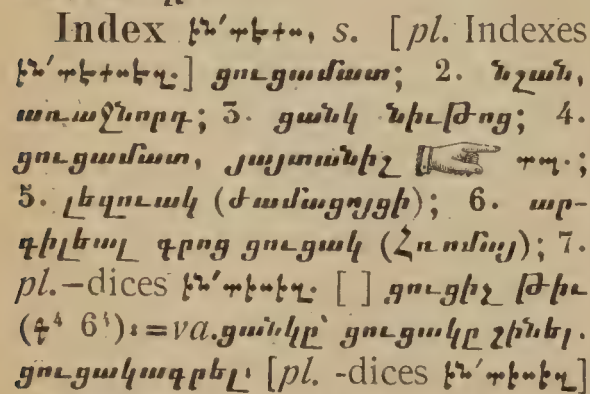 Index ի՛ն՛տեքս, s. [pl. Indexes
ի՛ն՛տեքսեզ.] ցուցամատ; 2. նշան,
առաջնորդ; 3. ցանկ նիւթոց; 4.
ցուցամատ, յայտանիշ ☞ տպ.;
5. լեզուակ (ժամացոյցի); 6. ար-
գիլեալ գրոց ցուցակ (Հռոմայ); 7.
pl.–dices [ ] ցուցիչ թիւ
6⁴)։=va.ցանկը՝ ցուցակը շինել.
ցուցակագրել։ [pl. -dices